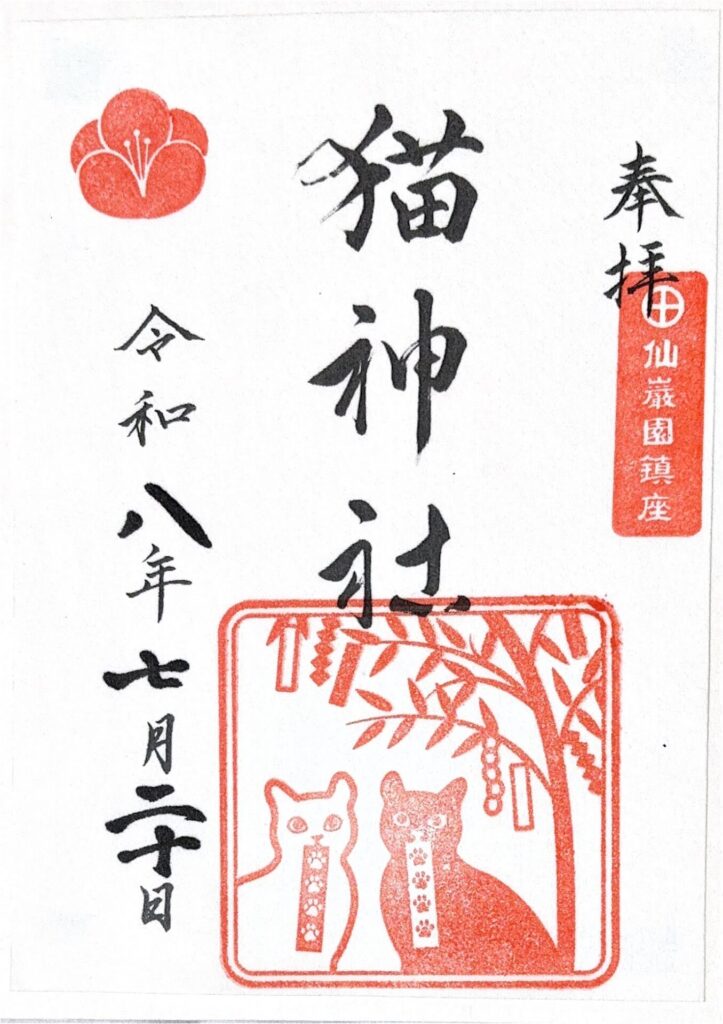 奉拝
仙巌園鎮座
猫神社
令和八年七月二十日